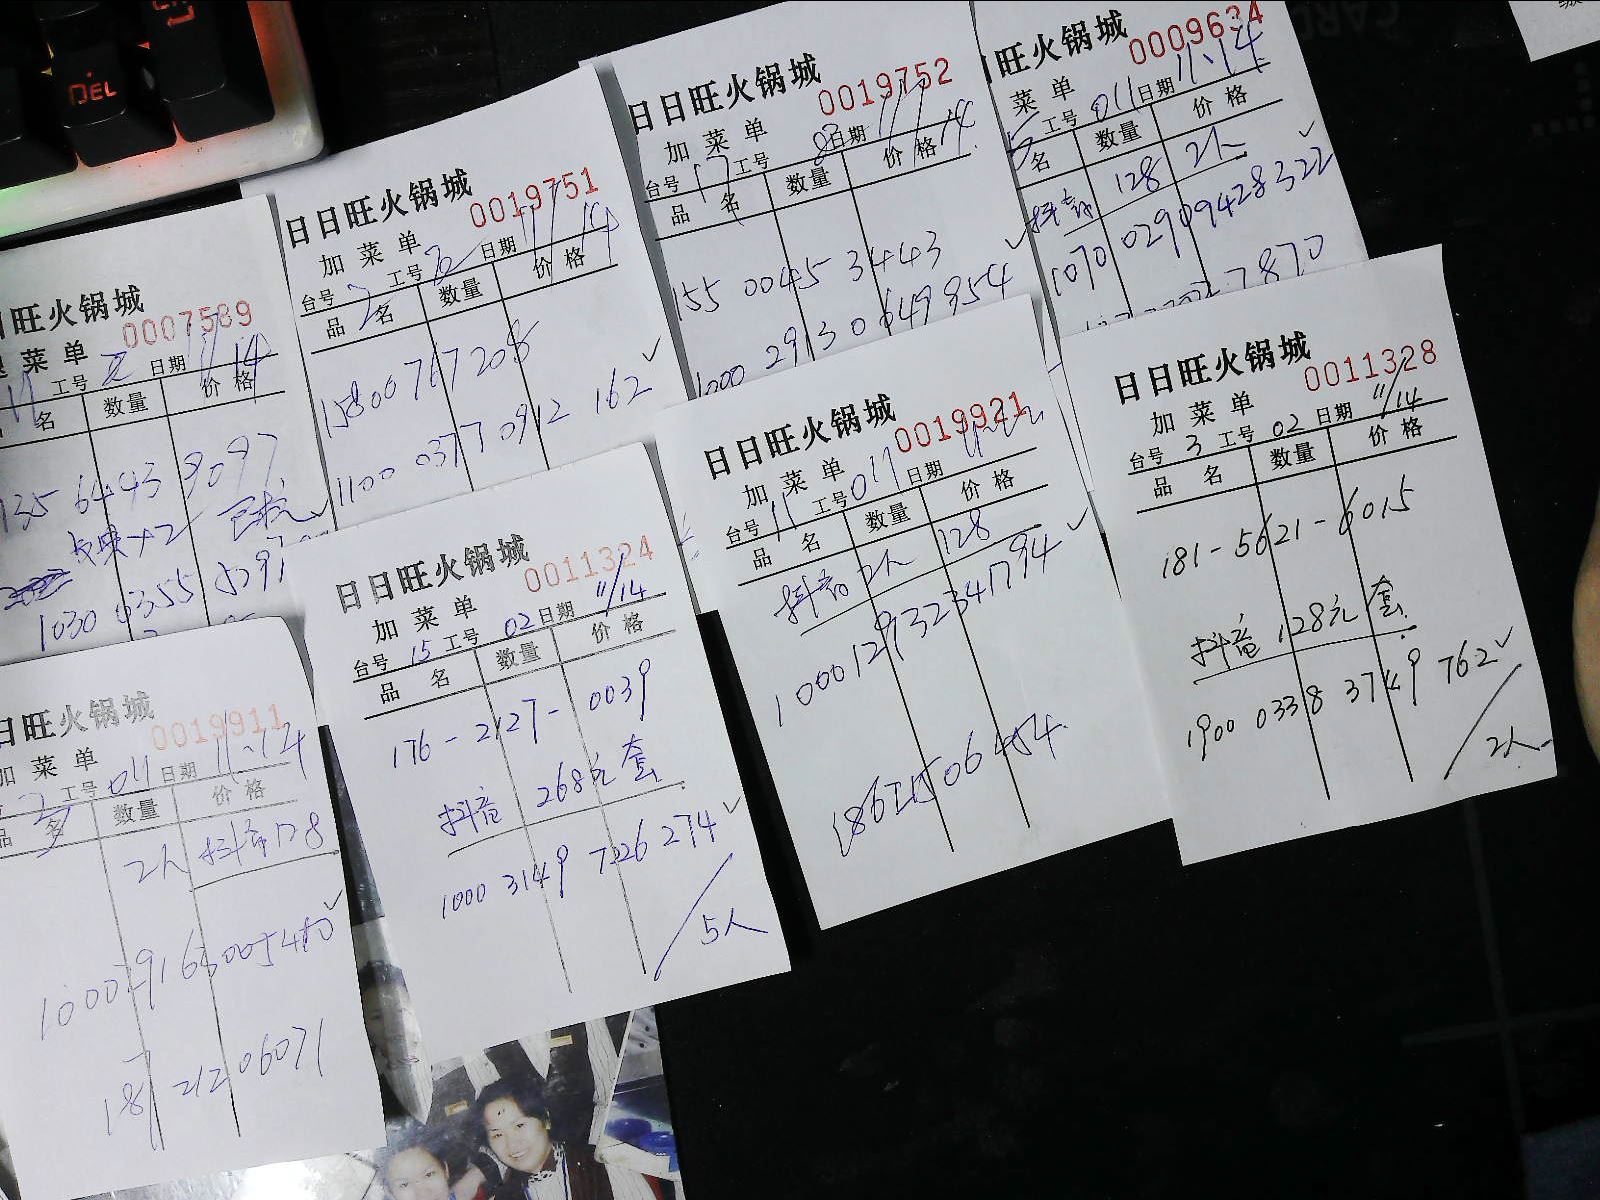 DEL
日日旺火锅城
0007589
菜单
工号 日期 11/14
名 数量 价格
135 6443 9097
1030 0355
日日旺火锅城
0019751
加菜单
台号 2 工号 日期 11/14
品名 数量 价格
15800767208
1100 0377 0912 162 ✓
日日旺火锅城
0019752
加菜单
台号 17 工号 8 日期 11/14
品名 数量 价格
155 0045 3443
1000 2913 0649954 ✓
旺火锅城
0009634
菜单
工号 011 日期 11.14
名 数量 价格
抖音 128 2人 ✓
1070 0290 9428322
7870
旺火锅城
0019911
加菜单
2 工号 011 日期 11.14
品名 数量 价格
2人 抖音128
日日旺火锅城
0011324
加菜单
台号 15 工号 02 日期 11/14
品名 数量 价格
176-2127-0039
抖音 268元套
1000 3149 7226 274 ✓
5人
日日旺火锅城
0019921
加菜单
台号 11 工号 011 日期
品名 数量 价格
抖音 2人 128
1000129132341794 ✓
日日旺火锅城
0011328
加菜单
台号 3 工号 02 日期 11/14
品名 数量 价格
181-5621-6015
抖音 128元套
1900 0338 3749 762 ✓
2人